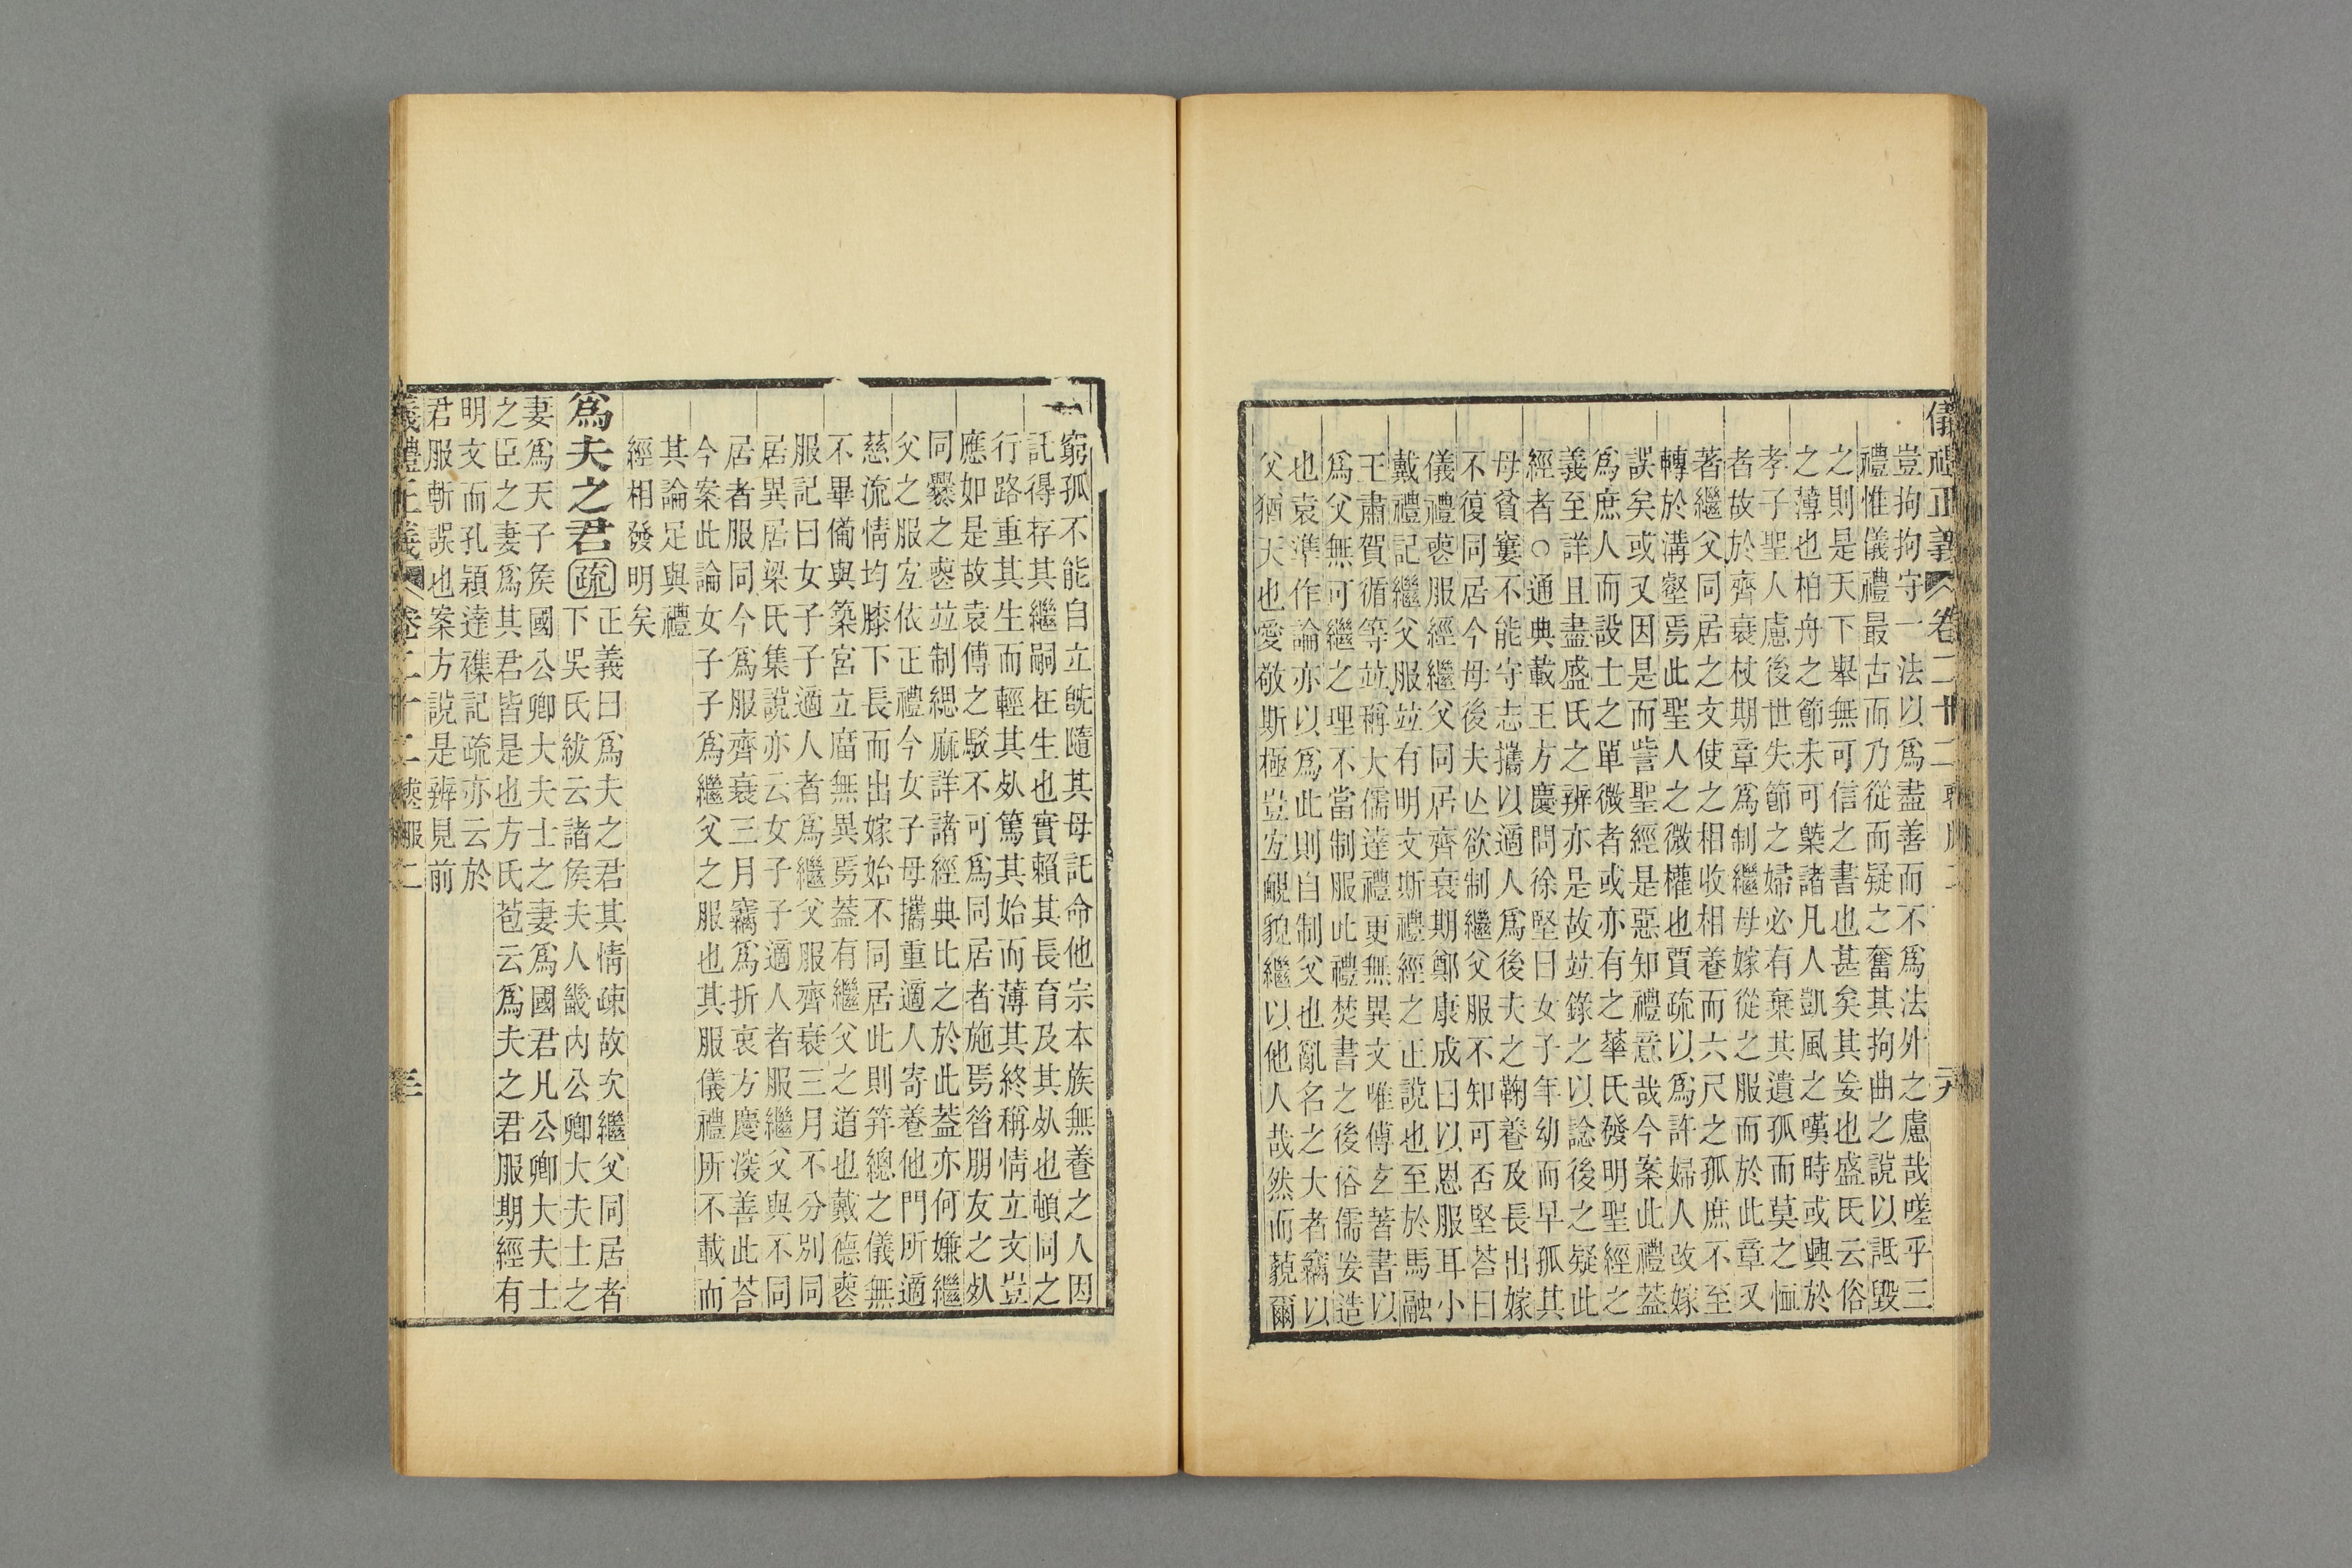 儀禮正義 卷二十二 喪服二
豈拘拘守一法以爲盡善而不爲法外之慮哉嗟乎三
禮惟儀禮最古而乃從而疑之奮其拘曲之說以詆毀
之則是天下舉無可信之書也甚矣其妄也盛氏云俗
之薄也柏舟之節未可槩諸凡人凱風之嘆時或興於
孝子聖人慮後世失節之婦必有棄其遺孤而莫之恤
者故於齊衰杖期章爲制繼母嫁從之服而於此章又
著繼父同居之文使之相收相養而六尺之孤庶不至
轉於溝壑焉此聖人之微權也賈疏以爲許婦人改嫁
誤矣或又因是而訾聖經是惡知禮意哉今案此禮蓋
爲庶人而設士之單微者或亦有之華氏發明聖經之
義至詳且盡盛氏之辨亦是故竝錄之以諗後之疑此
經者○通典載王方慶問徐堅曰女子年幼而早孤其
母貧窶不能守志攜以適人爲後夫之鞠養及長出嫁
不復同居今母後夫亾欲制繼父服不知可否堅答曰
儀禮喪服經繼父同居齊衰期鄭康成曰以恩服耳小
戴禮記繼父服竝有明文斯禮經之正說也至於馬融
王肅賀循等竝稱大儒達禮更無異文唯傅玄著書以
爲父無可繼之理不當制服此禮焚書之後俗儒妄造
也袁準作論亦以爲此則自制父也亂名之大者竊以
父猶天也愛敬斯極豈宜靦貌繼以他人哉然而藐爾
窮孤不能自立旣隨其母託命他宗本族無養之人因
託得存其繼嗣在生也實賴其長育及其死也頓同之
行路重其生而輕其死篤其始而薄其終稱情立文豈
應如是故袁傅之駁不可爲同居者施焉昔朋友之死
同爨之喪竝制緦麻詳諸經典比之於此蓋亦何嫌繼
父之服宜依正禮今女子母攜重適人寄養他門所適
慈流情均膝下長而出嫁始不同居此則笄總之儀無
不畢備與築宮立廟無異焉蓋有繼父之道也戴德喪
服記曰女子子適人者爲繼父服齊衰三月不分別同
居異居梁氏集說亦云女子子適人者服繼父與不同
居者服同今爲服齊衰三月竊爲折衷方慶深善此答
今案此論女子子爲繼父之服也其服儀禮所不載而
其論足與禮
經相發明矣
爲夫之君疏正義曰爲夫之君其情疎故次繼父同居者
下吳氏紱云諸侯夫人畿內公卿大夫士之
妻爲天子侯國公卿大夫士之妻爲國君凡公卿大夫士
之臣之妻爲其君皆是也方氏苞云爲夫之君服期經有
明文而孔穎達襍記疏亦云於
君服斬誤也案方說是辨見前
儀禮正義 卷二十二 喪服二